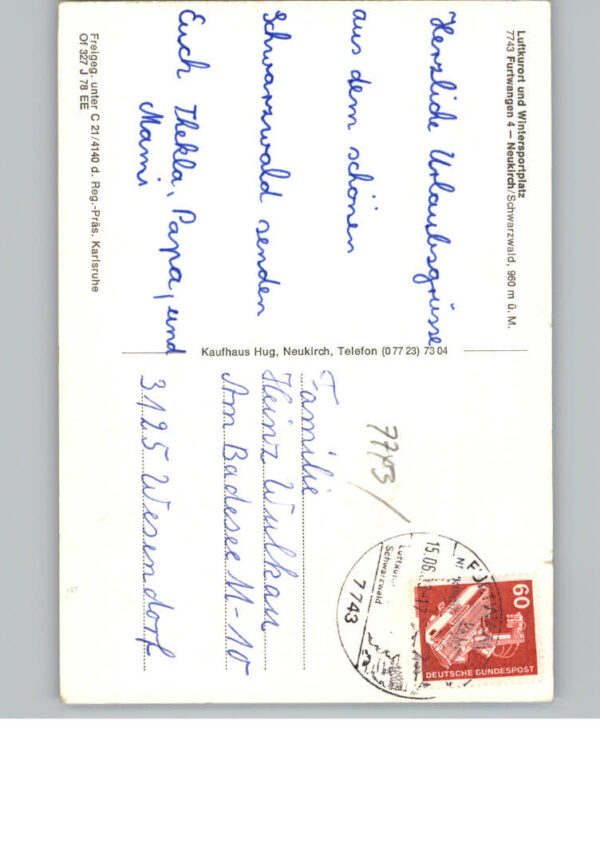 Luftkurort und Wintersportplatz
7743 Furtwangen 4 – Neukirch/Schwarzwald, 960 m ü. M.
Herzliche Urlaubsgrüsse
aus dem schönen
Schwarzwald senden
Euch Thekla, Papa, und
Mami
Freigeg. unter C 21/4140 d. Reg.-Präs. Karlsruhe
Of 327 J 78 EE
Kaufhaus Hug, Neukirch, Telefon (0 77 23) 73 04
7743
15.06.
Luftkurort
Schwarzwald
7743
60
DEUTSCHE BUNDESPOST
Familie
Heinz Wulkau
Am Badesee M-10
3125 Wesendorf